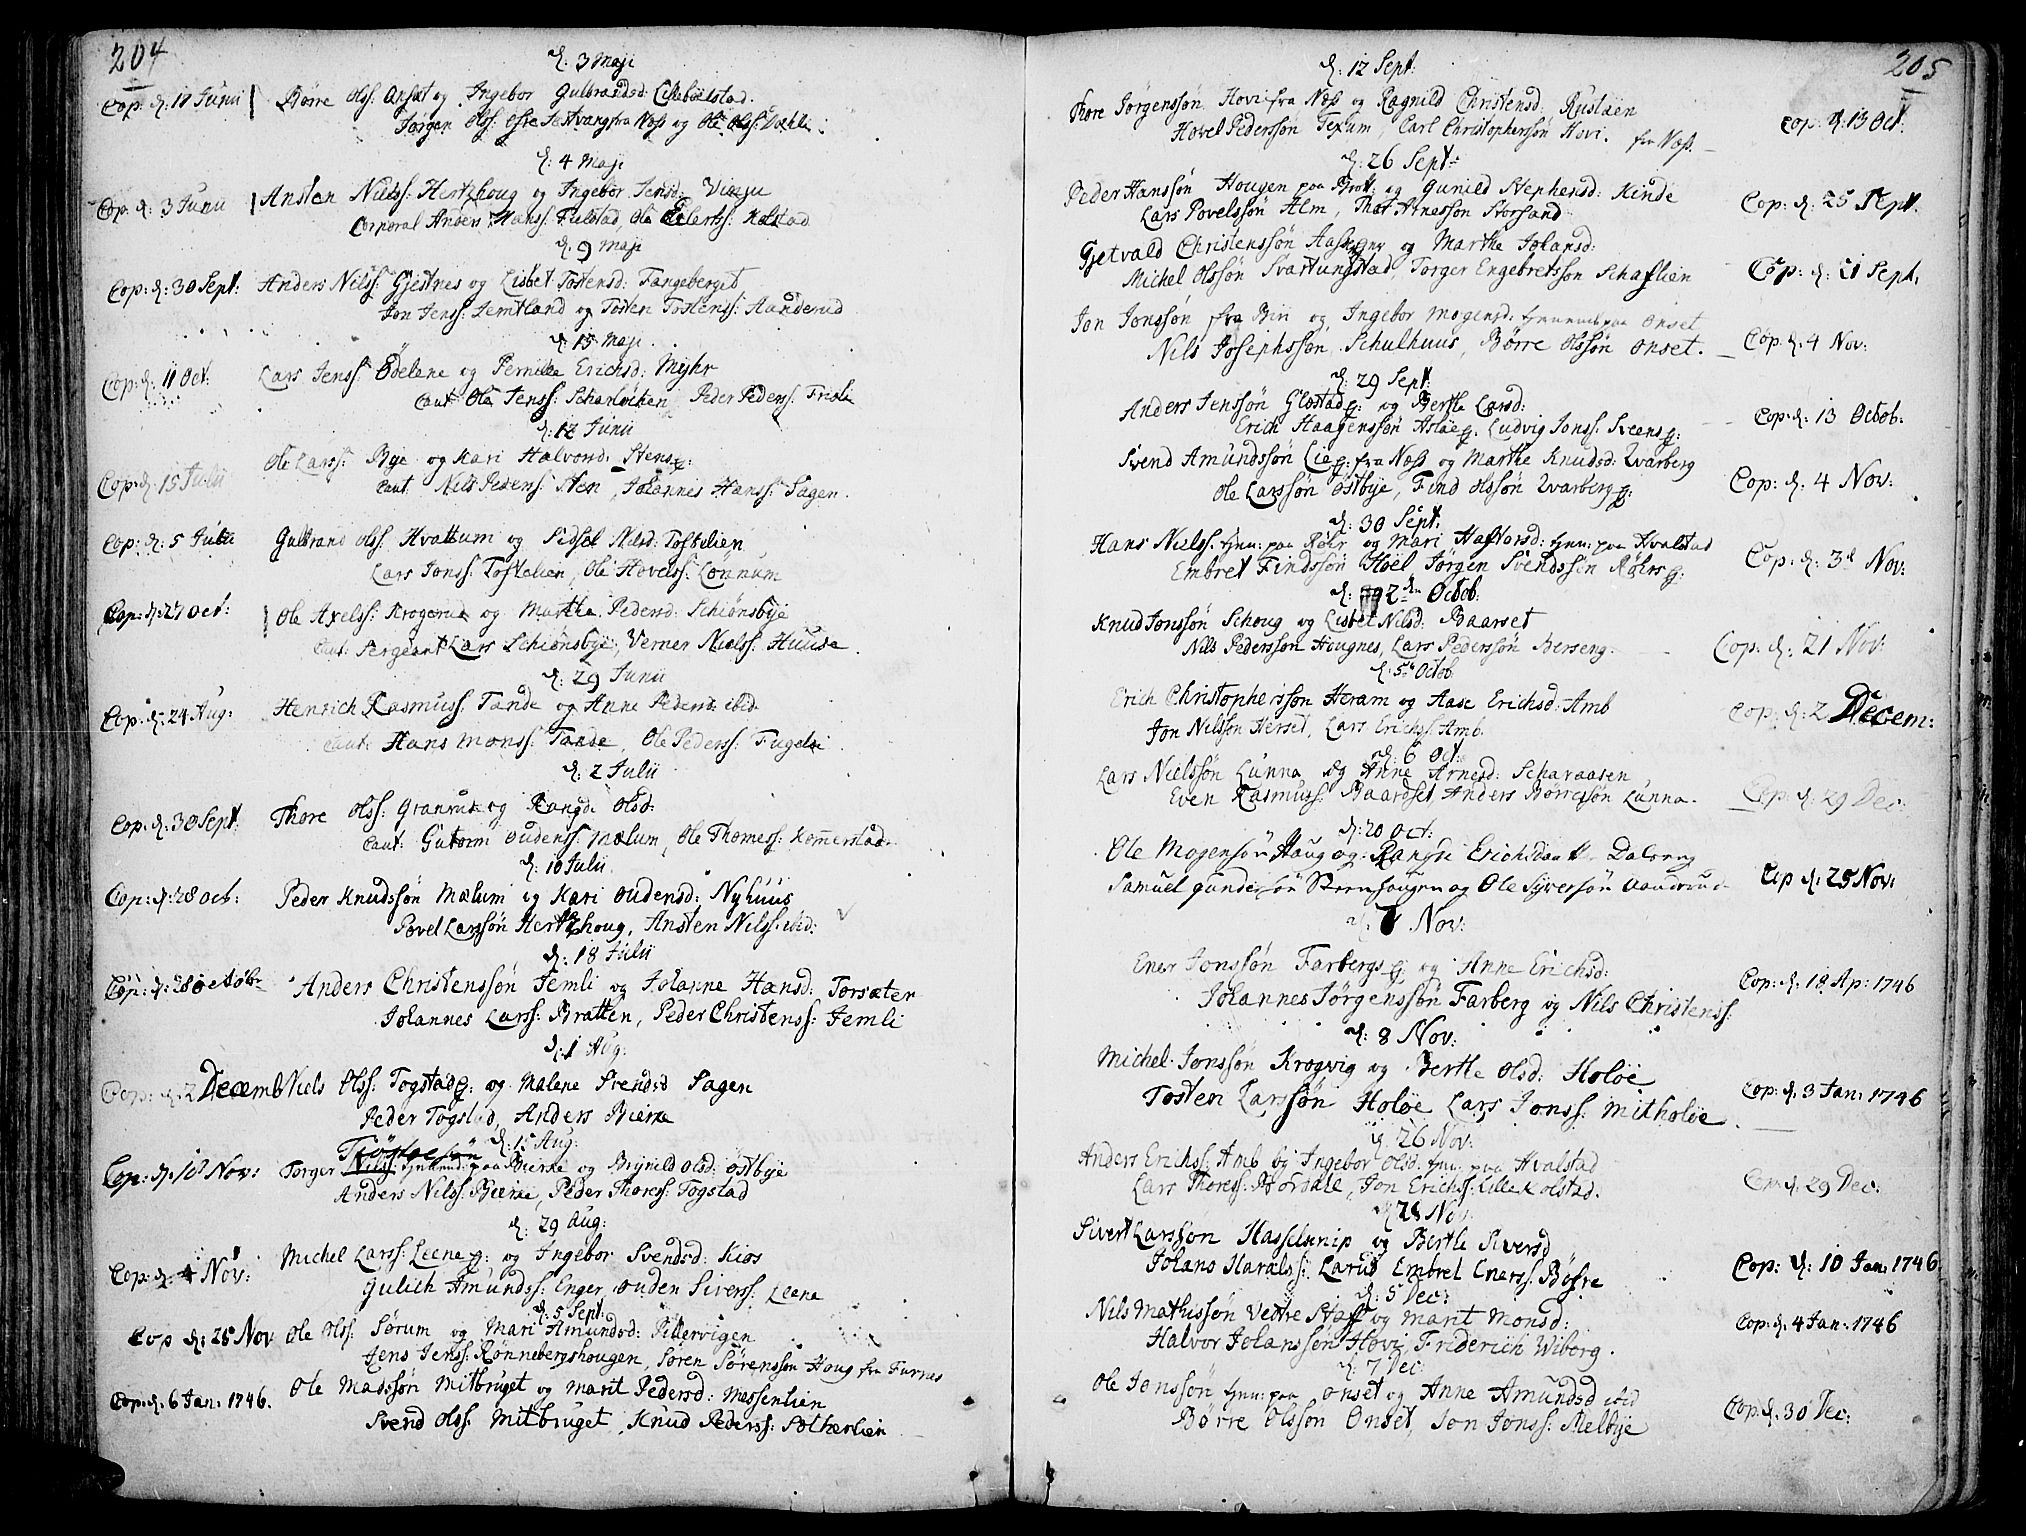 204
d: 3 Maji
Cop: d: 17 Junii Børre Olss: Opsæt og Ingebor Gulbrandsd:
Jørgen Olss: fra Næss og Ole Olss: Dæhli.
d: 4 Maji
Cop: d: 3 Junii Ansten Nielss: Hertzhoug og Ingebor Jensd: Vinju
Corporal Anders Hanss: Fulstad, Ole Eilertss: Kolstad
d: 9 Maji
Cop: d: 30 Sept: Anders Nilss: Gjestnes og Lisbet Tostensd: Fangeberget
Jon Jenss: Jemtland og Tosten Tostenss: Aanderud
d: 15 Maji
Cop: d: 11 Oct: Lars Jenss: Ødelene og Pernille Erichsd: Myhr
Caut: Ole Jenss: Scharløken Peder Pederss: Frisli
d: 12 Junii
Cop: d: 15 Julii Ole Larss: Bye og Kari Halvorsd: Stens g:
Caut: Nils Pederss: Sten, Johannes Hanss: Sagen.
Cop: d: 5 Julii Gulbrand Olss: Hvattum og Sidsel Nilsd: Tostelien
Lars Jonss: Tostelien, Ole Hovelss: Lonnum
Cop: d: 27 Oct: Ole Axelss: Krogerud og Marthe Pedersd: Schiønsbye
Caut: Sergeant Lars Schiønsbye, Verner Nielss: Huuse.
d: 29 Junii
Cop: d: 24 Aug: Henrich Rasmuss: Tande og Anne Pedersd: ibid
Caut: Hans Monss: Tande, Ole Pederss: Fugelsi
d: 2 Julii
Cop: d: 30 Sept: Thore Olss: Granrud og Rangdi Olsd:
Caut: Gutorm Oudenss: Mælum, Ole Thomess: Kommerstad
d: 10 Julii
Cop: d: 28 Oct: Peder Knudssøn Mælum og Kari Oudensd: Nyhuus
Povel Larssøn Hertzhoug, Ansten Nilss: ibid:
d: 18 Julii
Cop: d: 28 Octobr Anders Christenssøn Jemli og Johanne Hansd: Torsæter
Johannes Larss: Bratten, Peder Christenss: Jemli
d: 1 Aug:
Cop: d: 2 Decemb Niels Olss: Togstad g: og Malene Svendsd Sagen
Peder Togstad, Anders Bierke
d: 15 Aug:
Cop: d: 18 Nov: Torger paa Bierke og Brynild Olsd: Østbye
Anders Nilss: Bierke, Peder Thoress: Togstad
d: 29 Aug:
Cop: d: 4 Nov: Michel Larss: Leene g: og Ingebor Svendsd: Kios
Gulich Amundss: Enger, Ouden Siverss: Leene
d: 5 Sept:
Cop d: 25 Nov Ole Olss: Sørum og Mari Amundsd: Pillervigen
Jens Jenss: Rønnebergshougen, Søren Sørenssøn Houg fra Furnes
Cop: d: 6 Jan: 1746. Ole Madssøn Mitbruget og Marit Pedersd: Messenlien
Svend Olss: Mitbruget, Knud Pederss: Sætherlien
205
d: 12 Sept:
Thore Jørgenssøn Hovi fra Næss og Ragnild Christensd: Rustøen Cop: d: 13 Oct:
Hovel Pederssøn Texum, Carl Christopherssøn Hovi. fra Næss.
d: 26 Sept:
Peder Hanssøn Hougen paa og Gunild Stephensd: Kinde Cop: d: 25 Sept.
Lars Povelssøn Alm, Arnessøn Storsand
Gjetvald Christenssøn og Marthe Johansd:
Michel Olssøn Svartungstad, Torger Engebretssøn Schaslien Cop: d: 21 Sept.
Jon Jonssøn fra Biri og Ingebor Mogensd: paa Onset
Nils Josephssøn Schulhuus, Børre Olssøn Onset. Cop: d: 4 Nov:
d: 29 Sept:
Anders Jenssøn Glæstad g: og Berthe Larsd: Cop: d: 13 Octob.
Erich Haagenssøn Holøe g. Ludvig Jonss. Sveens g:
Svend Amundssøn Lie g: fra Næss og Marthe Knudsd: Qvarberg Cop: d: 4 Nov:
Ole Larssøn Østbye, Find Olssøn Qvarberg g:
d: 30 Sept.
Hans Nielss: paa Røhr og Mari Haftorsd: paa Hvalstad Cop: d: 3d Nov:
Embret Findssøn Hoel Jørgen Svendssøn Røhrs g:
d: 2den Octob:
Knud Jonssøn Schoug og Lisbet Nilsd: Baarset
Nils Pederssøn Hougnes, Lars Pederssøn Berseng. Cop: d: 21 Nov:
d: 5 Octob
Erich Christopherssøn Heram og Aase Erichsd: Amb Cop: d: 2 Decem:
Jon Nilssøn Herset, Lars Erichss: Amb.
d: 6 Oct:
Lars Nielssøn Lunna og Anne Arnesd: Scharaasen
Even Rasmuss: Baardset, Anders Børressøn Lunna. Cop: d: 29 Dec:
d: 20 Oct:
Ole Mogensøn Haug og Rangdi Erichsdaatt. Dalseng
Samuel Gundersøn Steenhaugen og Ole Syversøn Aanderud Cop d: 25 Nov:
d: 7 Nov:
Ener Jonssøn Farbergs g: og Anne Erichsd: Cop: d: 18 Ap: 1746
Johannes Jørgenssøn Farberg og Nils Christenss:
d: 8 Nov:
Michel Jonssøn Krogvig og Berthe Olsd: Holøe Cop: d: 3 Jan: 1746
Tosten Larssøn Holøe Lars Jonss: Mitholøe.
d: 26 Nov:
Anders Erichss: Amb og Ingebor Olsd: paa Hvalstad
Lars Thoress: Hordale, Jon Erichss: Lillekolstad. Cop: d: 29 Dec:
d: 28 Nov:
Sivert Larssøn Hasselknip og Berthe Siversd
Johans Haralss: Larud Embret Enerss: Bøfre Cop: d: 10 Jan: 1746
d: 5 Dec:
Nils Mathissøn Vestre Staff og Marit Monsd: Cop: d. 4 Jan: 1746
Halvor Johanssøn Hovi, Friderich Wiborg.
d: 7 Dec:
Ole Jonssøn paa Onset og Anne Amundsd ibid
Børre Olssøn Onset, Jon Jonss: Melbye Cop: d. 30 Dec: